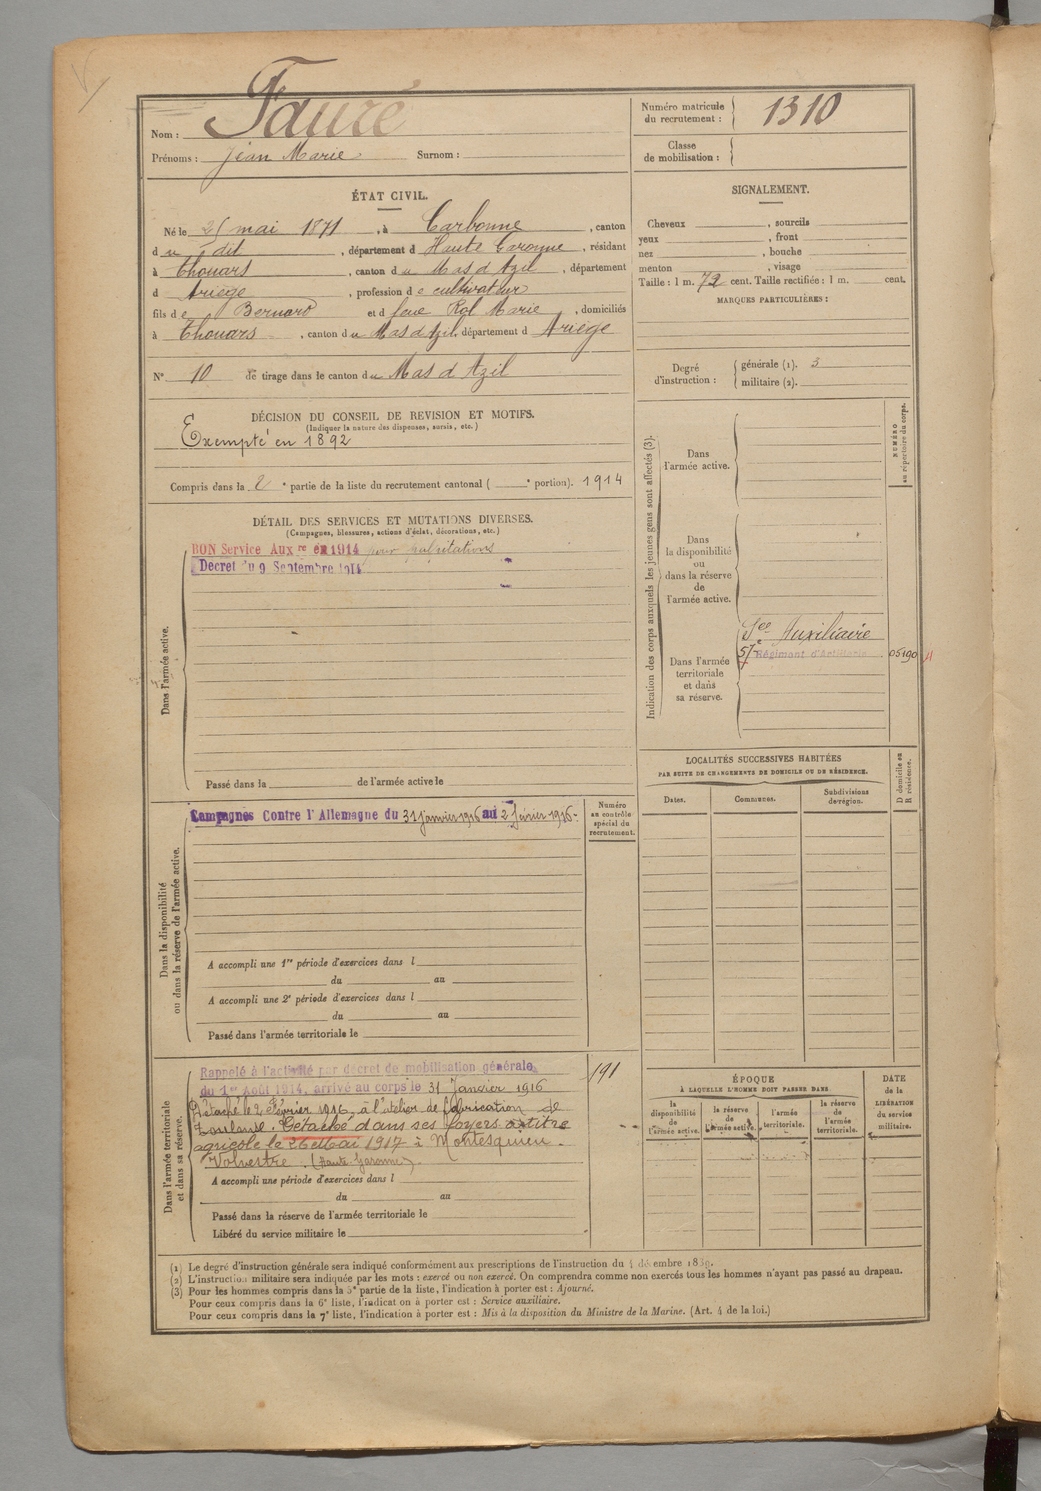 Nom : Fauré
Prénoms : Jean Marie Surnom :
Numéro matricule du recrutement : 1310
Classe de mobilisation :
ÉTAT CIVIL.
Né le 25 mai 1871, à Carbonne, canton
du dit, département d Haute Garonne, résidant
à Thouars, canton du Mas d Azil, département
d Ariège, profession de cultivateur
fils de Bernard et d feue Marie, domiciliés
à Thouars, canton du Mas d'Azil, département d Ariège
N° 10 de tirage dans le canton du Mas d Azil
SIGNALEMENT.
Cheveux , sourcils
yeux , front
nez , bouche
menton , visage
Taille : 1 m. 72 cent. Taille rectifiée : 1 m. cent.
MARQUES PARTICULIÈRES :
Degré d'instruction : générale (1). 3
militaire (2).
DÉCISION DU CONSEIL DE REVISION ET MOTIFS.
(Indiquer la nature des dispenses, sursis, etc.)
Exempté en 1892
Compris dans la 2e partie de la liste du recrutement cantonal ( e portion). 1914
DÉTAIL DES SERVICES ET MUTATIONS DIVERSES.
(Campagnes, blessures, actions d'éclat, décorations, etc.)
BON Service Auxre en 1914 pour palpitations
Décret du 9 Septembre 1914
Dans l'armée active.
Passé dans la de l'armée active le
Indication des corps auxquels les jeunes gens sont affectés (3).
NUMÉRO au répertoire du corps.
Dans l'armée active.
Dans la disponibilité ou dans la réserve de l'armée active.
Dans l'armée territoriale et dans sa réserve.
See Auxiliaire
57e Régiment d'Artillerie 05190
Dans la disponibilité ou dans la réserve de l'armée active.
Campagnes Contre l'Allemagne du 31 janvier 1916 au 2 février 1916.
Numéro au contrôle spécial du recrutement.
A accompli une 1re période d'exercices dans l
du au
A accompli une 2e période d'exercices dans l
du au
Passé dans l'armée territoriale le
LOCALITÉS SUCCESSIVES HABITÉES
PAR SUITE DE CHANGEMENTS DE DOMICILE OU DE RÉSIDENCE.
Dates. Communes. Subdivisions de région.
D domicile ou R résidence.
Dans l'armée territoriale et dans sa réserve.
Rappelé à l'activité par décret de mobilisation générale
du 1er Août 1914, arrivé au corps le 31 Janvier 1916
191
Détaché le 2 Février 1916, à l'atelier de fabrication de
Toulouse. Détaché dans ses foyers au titre
agricole le 26 Mai 1917 à Montesquieu-
Volvestre. (Haute Garonne).
A accompli une période d'exercices dans l
du au
Passé dans la réserve de l'armée territoriale le
Libéré du service militaire le
ÉPOQUE
À LAQUELLE L'HOMME DOIT PASSER DANS
la disponibilité de l'armée active.
la réserve de l'armée active.
l'armée territoriale.
la réserve de l'armée territoriale.
DATE de la LIBÉRATION du service militaire.
(1) Le degré d'instruction générale sera indiqué conformément aux prescriptions de l'instruction du 4 décembre 1889.
(2) L'instruction militaire sera indiquée par les mots : exercé ou non exercé. On comprendra comme non exercés tous les hommes n'ayant pas passé au drapeau.
(3) Pour les hommes compris dans la 5e partie de la liste, l'indication à porter est : Ajourné.
Pour ceux compris dans la 6e liste, l'indication à porter est : Service auxiliaire.
Pour ceux compris dans la 7e liste, l'indication à porter est : Mis à la disposition du Ministre de la Marine. (Art. 4 de la loi.)